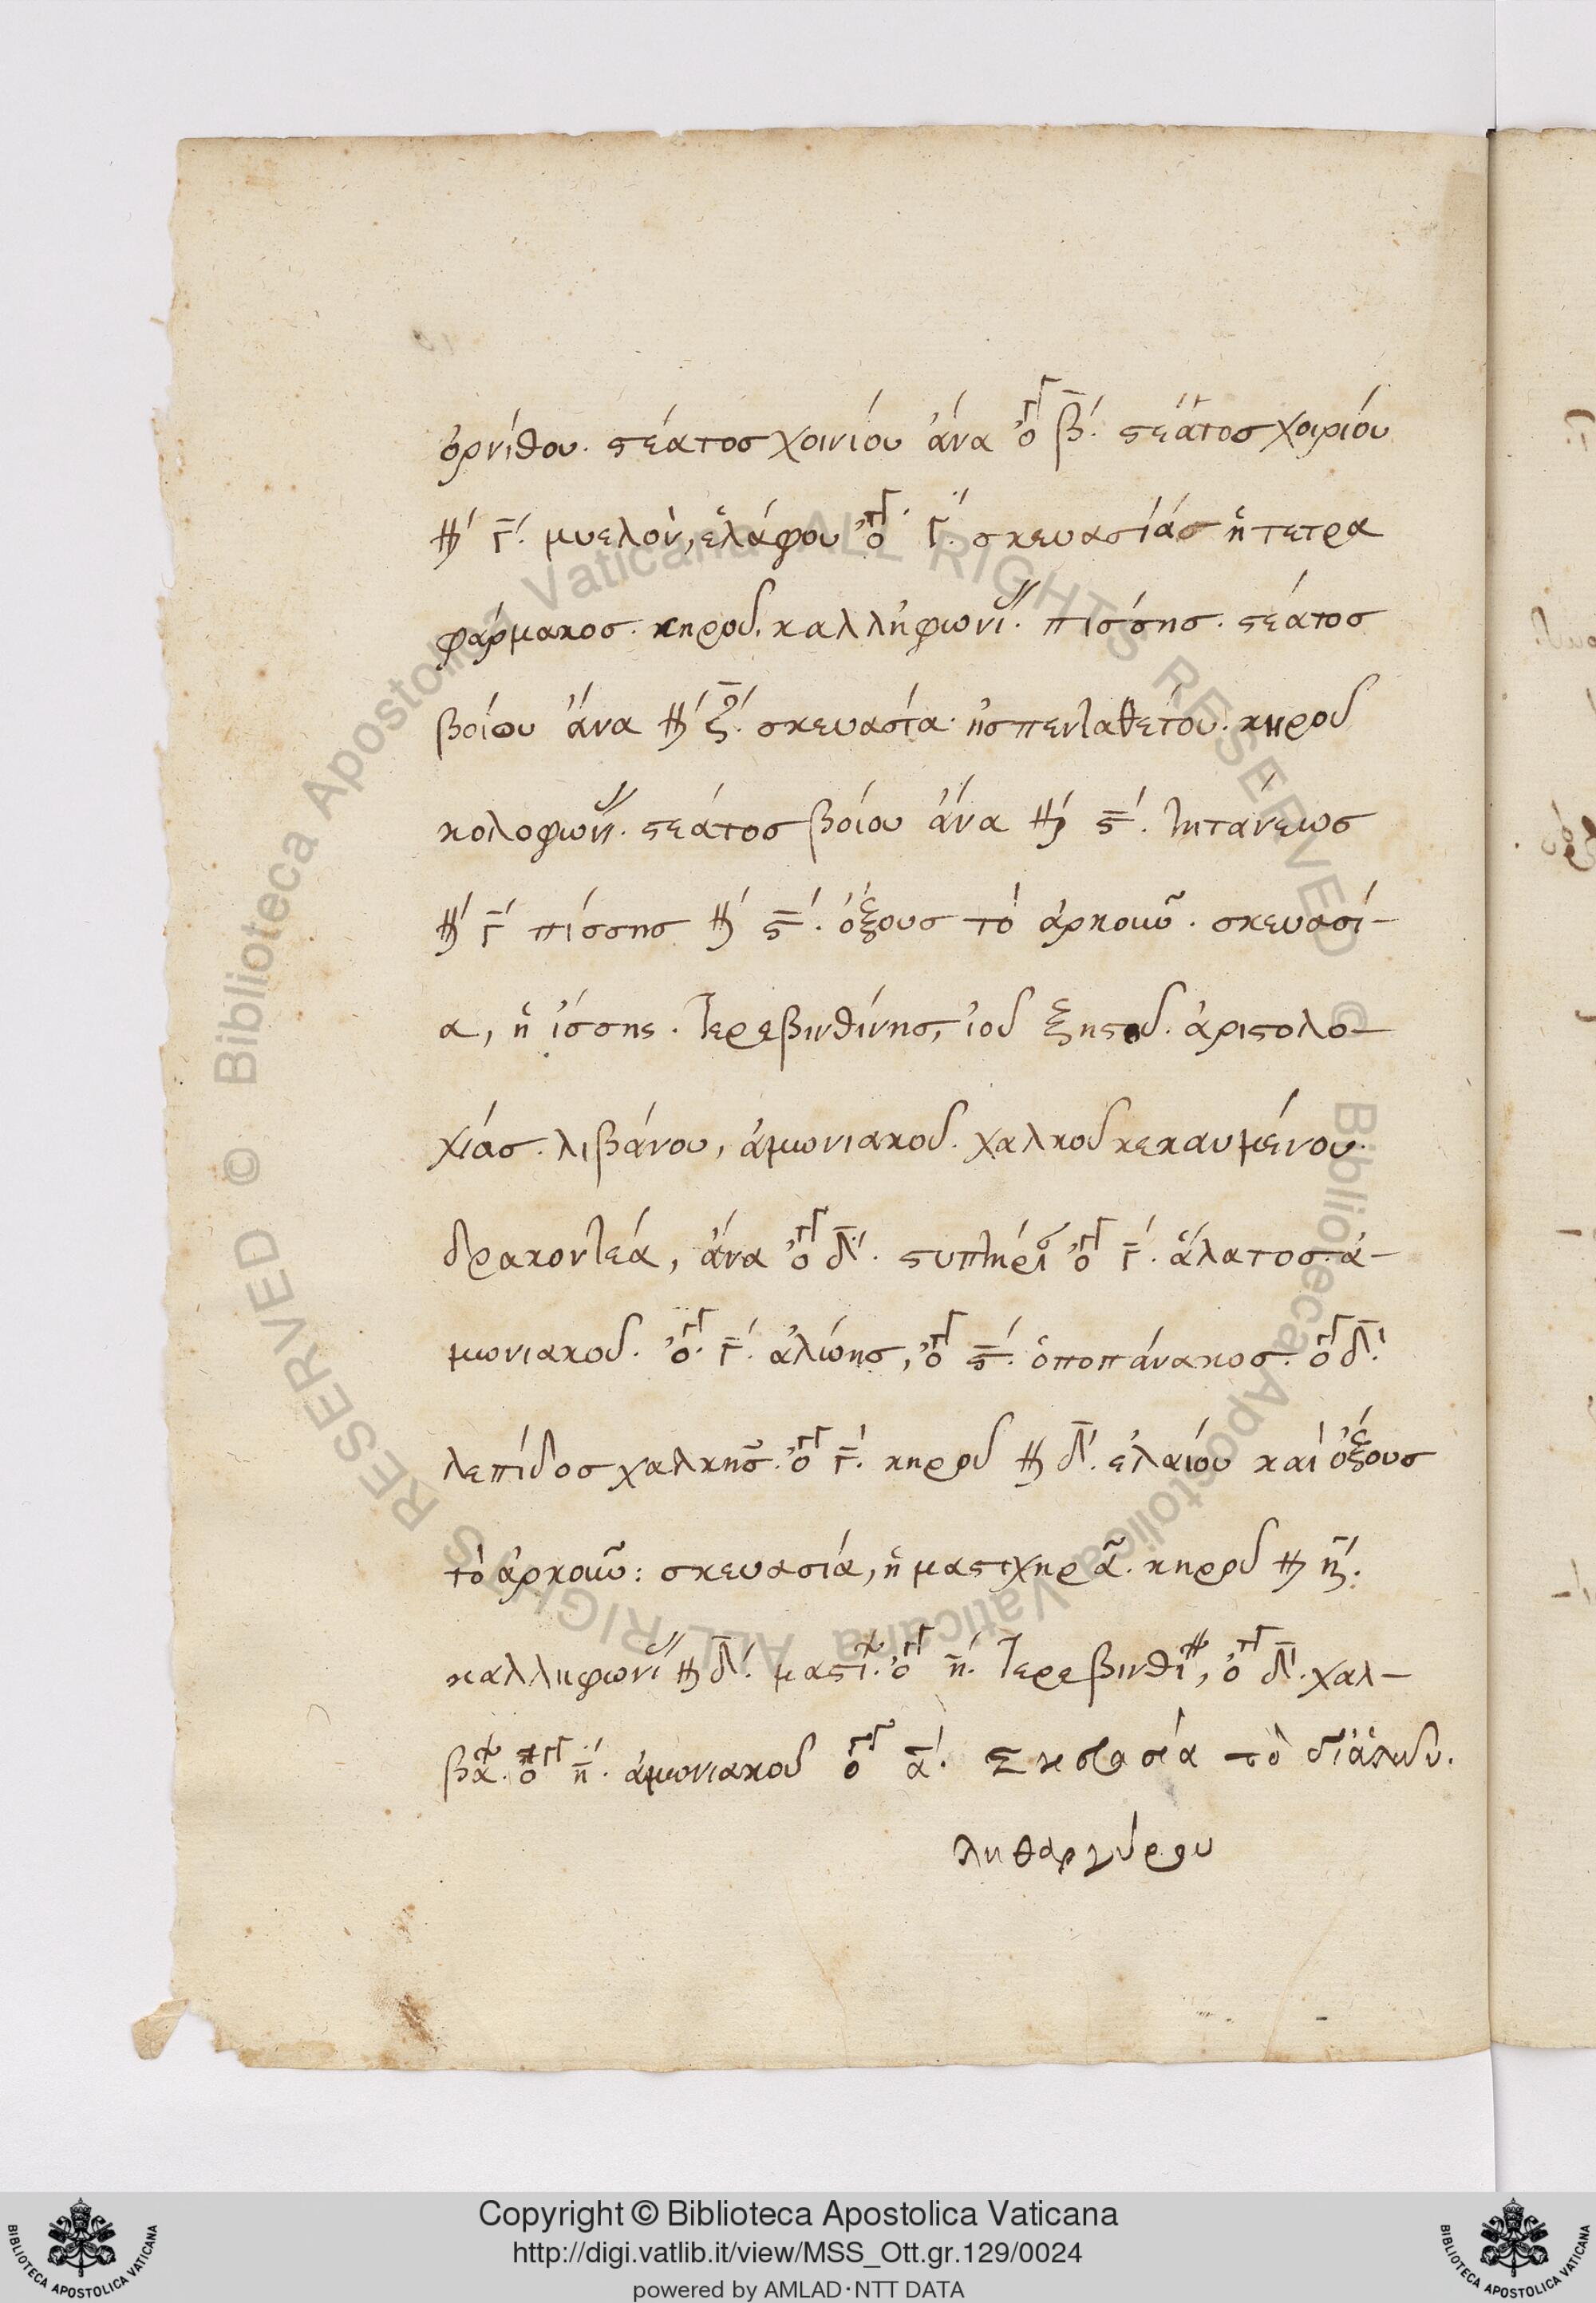 ὀρνίθου. ϛέατοσ χοινίου ἀνα ὀγγ β̅΄. ϛέατοσ χοιρίου
ⱈ΄ γ̅΄. μυελοὺ, ἐλάφου ὀγγ γ̅΄. σκευασίασ ἡ τετρα
φάρμακοσ. κηροῦ. καλληφωνί″. πίσσησ. ϛέατοσ
βοίου ἀνα ζ̅΄. σκευασία ἡσ πενταθέτου. κηροῦ
κολοφωνί″. ϛεάτοσ βοίου ἀνα ϛ̅΄. τητάνεωσ
γ̅΄ πίσσησ ϛ̅΄. ὄξουσ τὸ ἀρκοῦν. σκευασί-
α, ἡ ἴσσησ. τερεβινθίνησ, ἰοῦ ξηϛοῦ. ἀριϛολο-
χίασ. λιβάνου, ἀμωνιακοῦ. χαλκοῦ κεκαυμένου.
δρακοντεά, ἀνα ὀγγ δ̅΄. ϛυπτηρί ὀγγ γ̅΄. ἅλατοσ ἀ-
μωνιακοῦ. ὀγγ γ̅΄. ἀλώησ, ὀγγ ϛ̅΄. ὁποπάνακοσ. ὀγγ δ̅΄.
λεπίδοσ χαλκησ͂. ὀγγ γ̅΄. κηροῦ δ̅΄. ἐλαίου καὶ ὄξουσ
τὸ ἀρκοῦν: σκευασία, ἡ μαϛιχηρᾶ. κηροῦ η̅΄.
καλληφωνί″ δ̅΄. μαϛιχ. ὀγγ η̅΄. τερεβινθιν, ὀγγ δ̅΄. χαλ-
βαν. ὀγγ η̅΄. ἀμωνιακοῦ ὀγγ α̅΄. Σκευασία τὸ διὰ
ληθαργύρου
Copyright © Biblioteca Apostolica Vaticana
http://digi.vatlib.it/view/MSS_Ott.gr.129/0024
powered by AMLAD·NTT DATA
BIBLIOTECA APOSTOLICA VATICANA
BIBLIOTECA APOSTOLICA VATICANA
© Biblioteca Apostolica Vaticana ALL RIGHTS RESERVED © Biblioteca Apostolica Vaticana ALL RIGHTS RESERVED